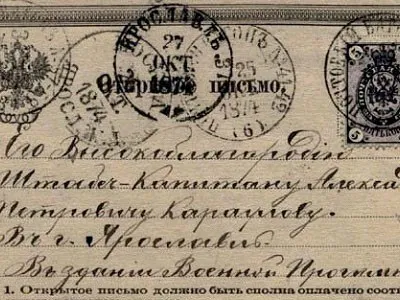 ЯРОСЛАВЛЬ
27
ОКТ.
1874
25
1874
(6)
1874
ПОЧТОВЫЙ
5
5
ОТКРЫТОЕ ПИСЬМО.
Его Высокоблагородію
Штабсъ-Капитану Алекса
Петровичу Караулову.
Въ г. Ярославль.
Въ зданіи Военной Прогимн
1. Открытое письмо должно быть сполна оплачено соотв